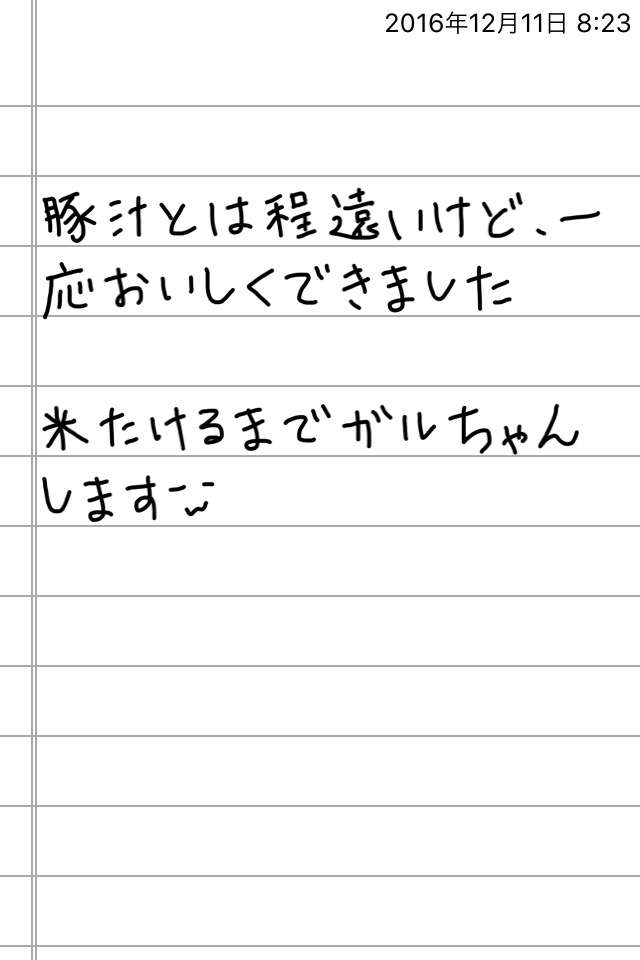 2016年12月11日 8:23
豚汁とは程遠いけど、一
応おいしくできました
米たけるまでガルちゃん
します